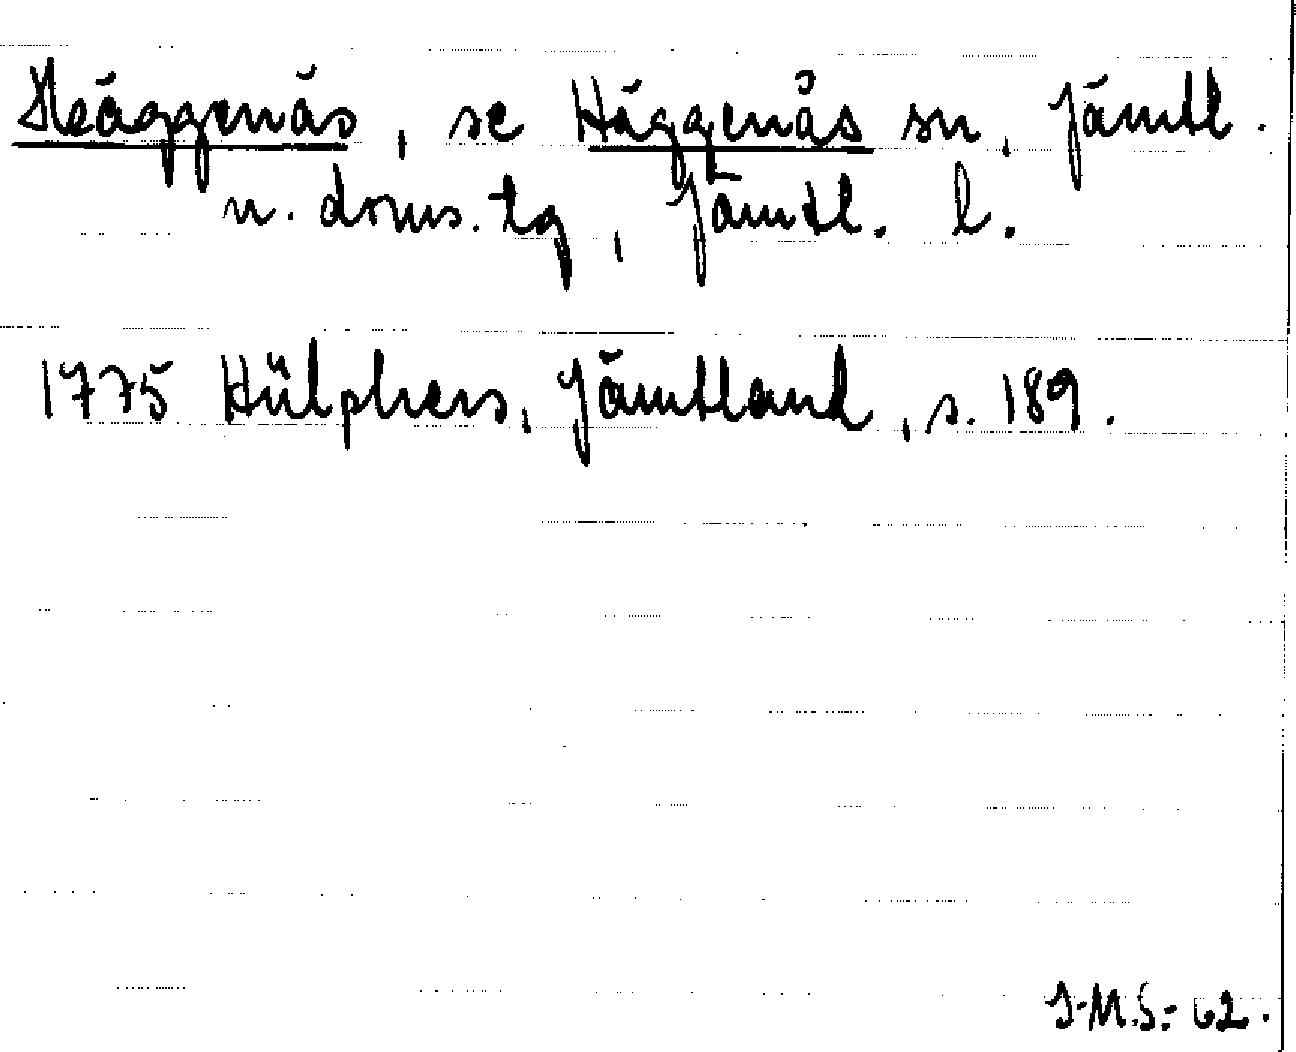 Heäggenäs, se Häggenås sn, Jämtl.
n. doms. tg, Jämtl. l.
1775 Hülphers, Jämtland, s. 189.
I-M.S.- 62.